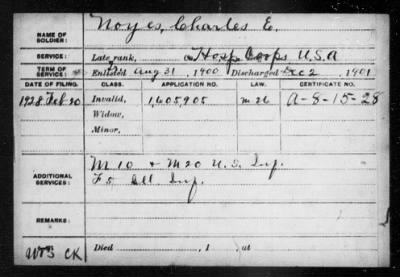 NAME OF SOLDIER: Noyes, Charles E.
SERVICE: Late rank, Hosp Corps U.S.A
TERM OF SERVICE: Enlisted Aug 31, 1900 Discharged Dec 2, 1901
DATE OF FILING. CLASS. APPLICATION NO. LAW. CERTIFICATE NO.
1928 Feb 20 Invalid, 1,605,905 m 26 A-8-15-28
Widow,
Minor,
ADDITIONAL SERVICES: M 10 + M 20 U.S. Inf.
F 5 Ill. Inf.
REMARKS:
Died , 1 , at